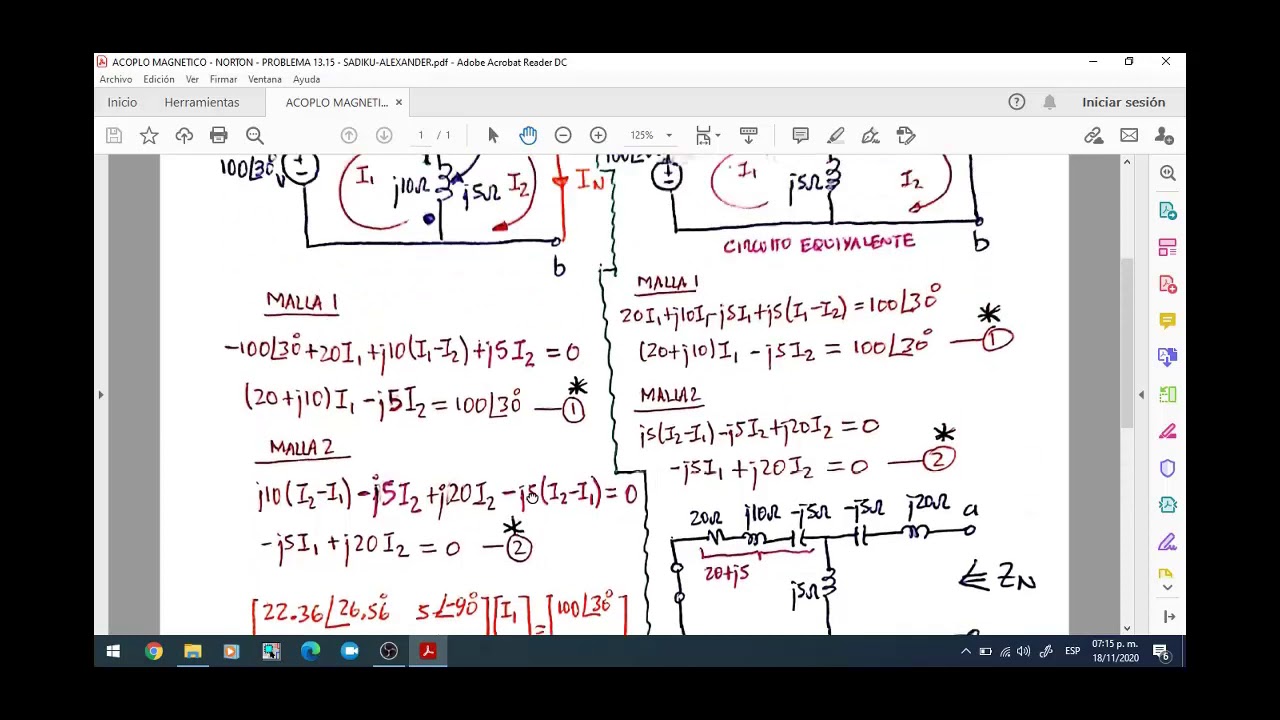 ACOPLO MAGNETICO - NORTON - PROBLEMA 13.15 - SADIKU-ALEXANDER.pdf - Adobe Acrobat Reader DC
Archivo Edición Ver Firmar Ventana Ayuda
Inicio Herramientas ACOPLO MAGNETI... × Iniciar sesión
1 / 1 125%
100∠30° V
I₁
j10Ω
j5Ω
I₂
I_N
b
I₁
j5Ω
I₂
b
CIRCUITO EQUIVALENTE
MALLA 1
-100∠30°+20I₁+j10(I₁-I₂)+j5I₂ = 0
(20+j10)I₁ -j5I₂ = 100∠30° — ① *
MALLA 2
j10(I₂-I₁) -j5I₂ +j20I₂ -j5(I₂-I₁) = 0
-j5I₁ +j20I₂ = 0 — ② *
[22.36∠26.56° 5∠-90°][I₁]=[100∠30°]
MALLA 1
20I₁+j10I₁-j5I₁+j5(I₁-I₂)=100∠30°
(20+j10)I₁ -j5I₂ = 100∠30° — ① *
MALLA 2
j5(I₂-I₁)-j5I₂+j20I₂ = 0
-j5I₁ +j20I₂ = 0 — ② *
20Ω j10Ω -j5Ω -j5Ω j20Ω a
20+j5
j5Ω
⇐ Z_N
ESP
07:15 p. m.
18/11/2020
6